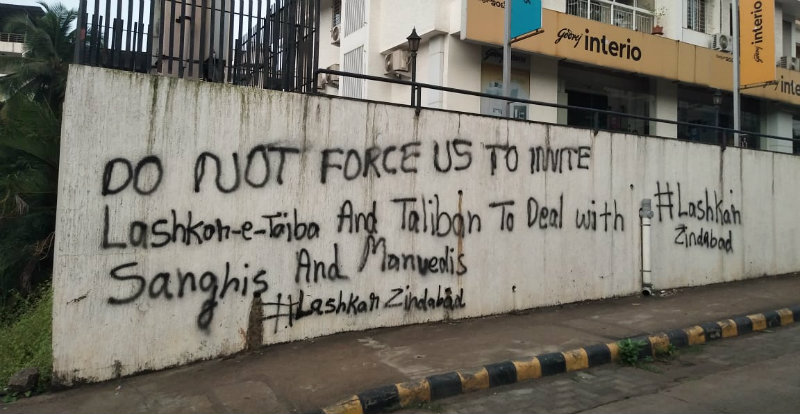 Godrej interio
Godrej interio
inte
DO NOT FORCE US TO INVITE
Lashkar-e-Taiba And Taliban To Deal with
Sanghis And Manvedis
#Lashkar Zindabad
#Lashkar
Zindabad